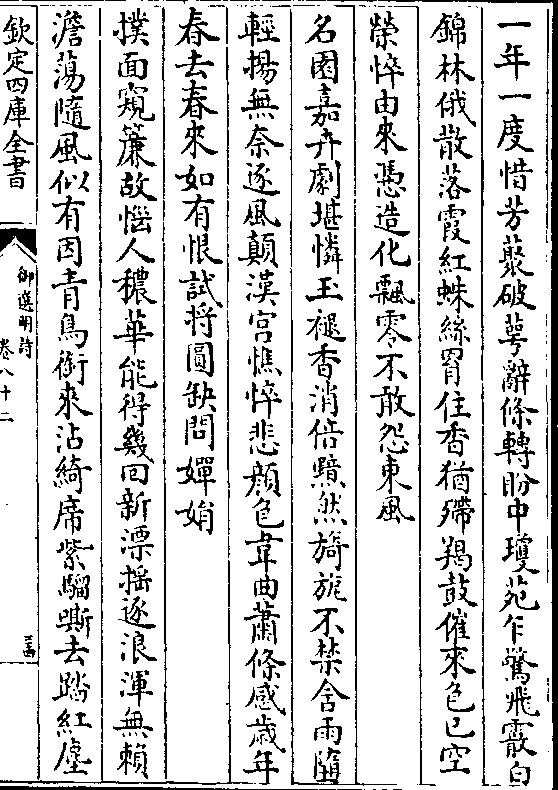 一年一度惜芳藂破萼辭條轉盼中瓊苑乍驚飛霰白
錦林俄散落霞紅蛛絲罥住香猶殢羯鼓催來色已空
榮悴由來憑造化飄零不敢怨東風
名園嘉卉劇堪憐玉褪香消倍黯然旖旎不禁含雨隨
輕揚無奈逐風顛漢宮憔悴悲顔色韋曲蕭條感歳年
春去春來如有恨試將圓缺問嬋娟
撲面窺簾故惱人穠華能得幾回新漂搖逐浪渾無賴
澹蕩隨風似有因青鳥銜來沾綺席紫騮嘶去踏紅塵
欽定四庫全書
御選明詩
卷八十二